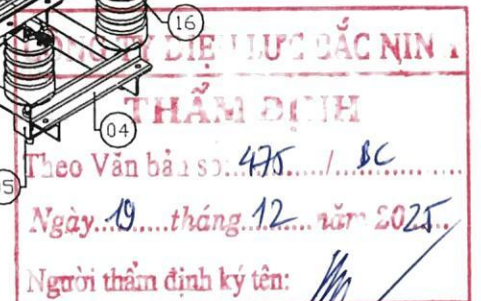 16
CÔNG TY ĐIỆN LỰC BẮC NINH
THẨM ĐỊNH
04
Theo Văn bản số: 475 / BC
05
Ngày 19 tháng 12 năm 2025
Người thẩm định ký tên: